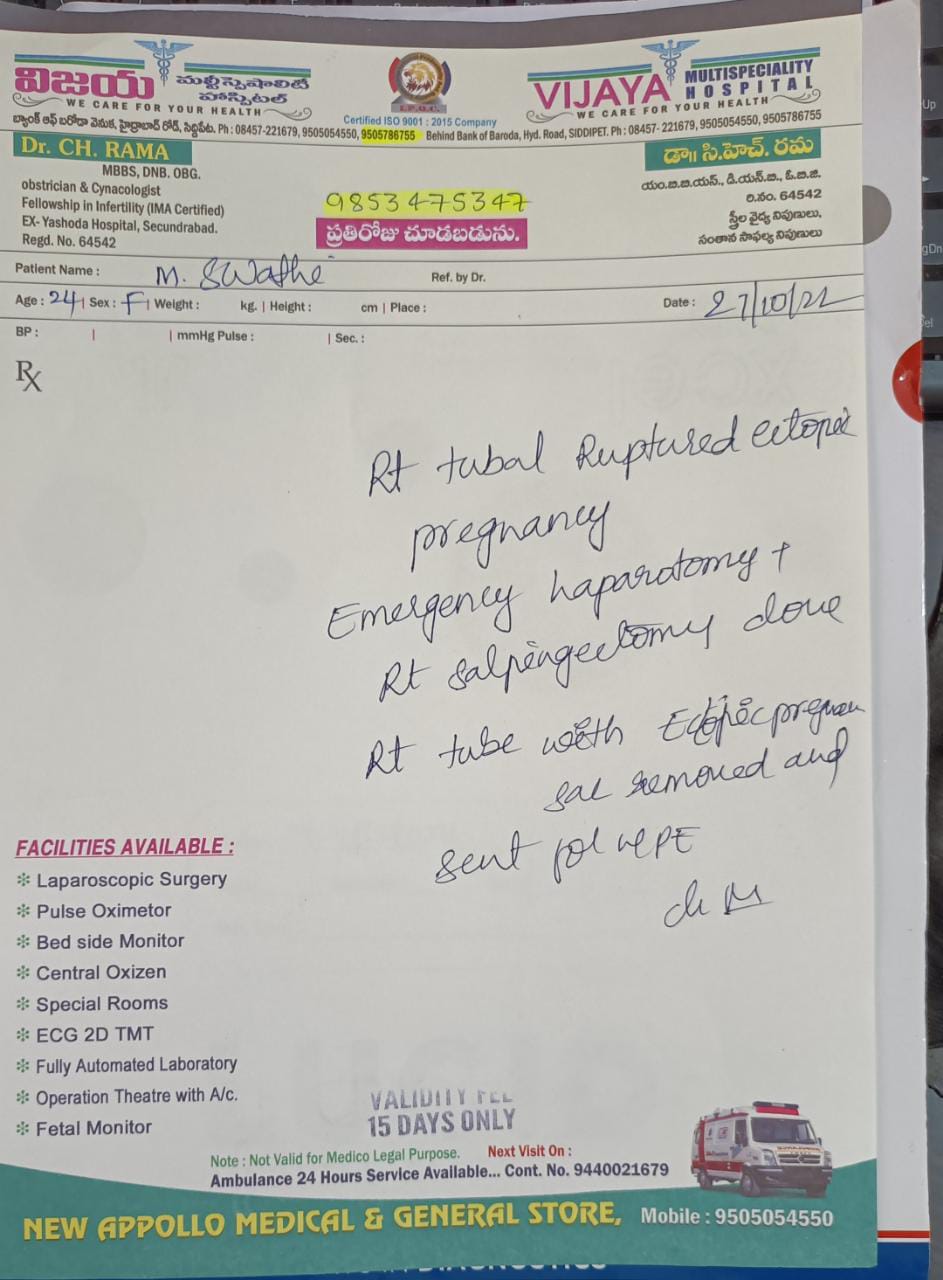 విజయ మల్టీస్పెషాలిటీ హాస్పిటల్
WE CARE FOR YOUR HEALTH
I.P.Q.C.
Certified ISO 9001 : 2015 Company
VIJAYA MULTISPECIALITY HOSPITAL
WE CARE FOR YOUR HEALTH
బ్యాంక్ ఆఫ్ బరోడా వెనుక, హైద్రాబాద్ రోడ్, సిద్దిపేట. Ph : 08457-221679, 9505054550, 9505786755
Behind Bank of Baroda, Hyd. Road, SIDDIPET. Ph : 08457- 221679, 9505054550, 9505786755
Dr. CH. RAMA
MBBS, DNB. OBG.
obstrician & Cynacologist
Fellowship in Infertility (IMA Certified)
EX- Yashoda Hospital, Secundrabad.
Regd. No. 64542
9853475347
ప్రతిరోజు చూడబడును.
డా॥ సి.హెచ్. రమ
యం.బి.బి.యస్., డి.యన్.బి., ఓ.బి.జి.
రి.నం. 64542
స్త్రీల వైద్య నిపుణులు,
సంతాన సాఫల్య నిపుణులు
Patient Name : M. Swathi Ref. by Dr.
Age : 24 | Sex : F | Weight : kg. | Height : cm | Place : Date : 27/10/22
BP : | | mmHg Pulse : | Sec. :
Rx
Rt tubal Ruptured ectopic
pregnancy
Emergency laparotomy +
Rt salpingectomy done
Rt tube with Ectopic pregnan
sac removed and
sent for HPE
FACILITIES AVAILABLE :
❇ Laparoscopic Surgery
❇ Pulse Oximetor
❇ Bed side Monitor
❇ Central Oxizen
❇ Special Rooms
❇ ECG 2D TMT
❇ Fully Automated Laboratory
❇ Operation Theatre with A/c.
❇ Fetal Monitor
VALIDITY FEE
15 DAYS ONLY
Note : Not Valid for Medico Legal Purpose. Next Visit On :
Ambulance 24 Hours Service Available... Cont. No. 9440021679
NEW APPOLLO MEDICAL & GENERAL STORE, Mobile : 9505054550